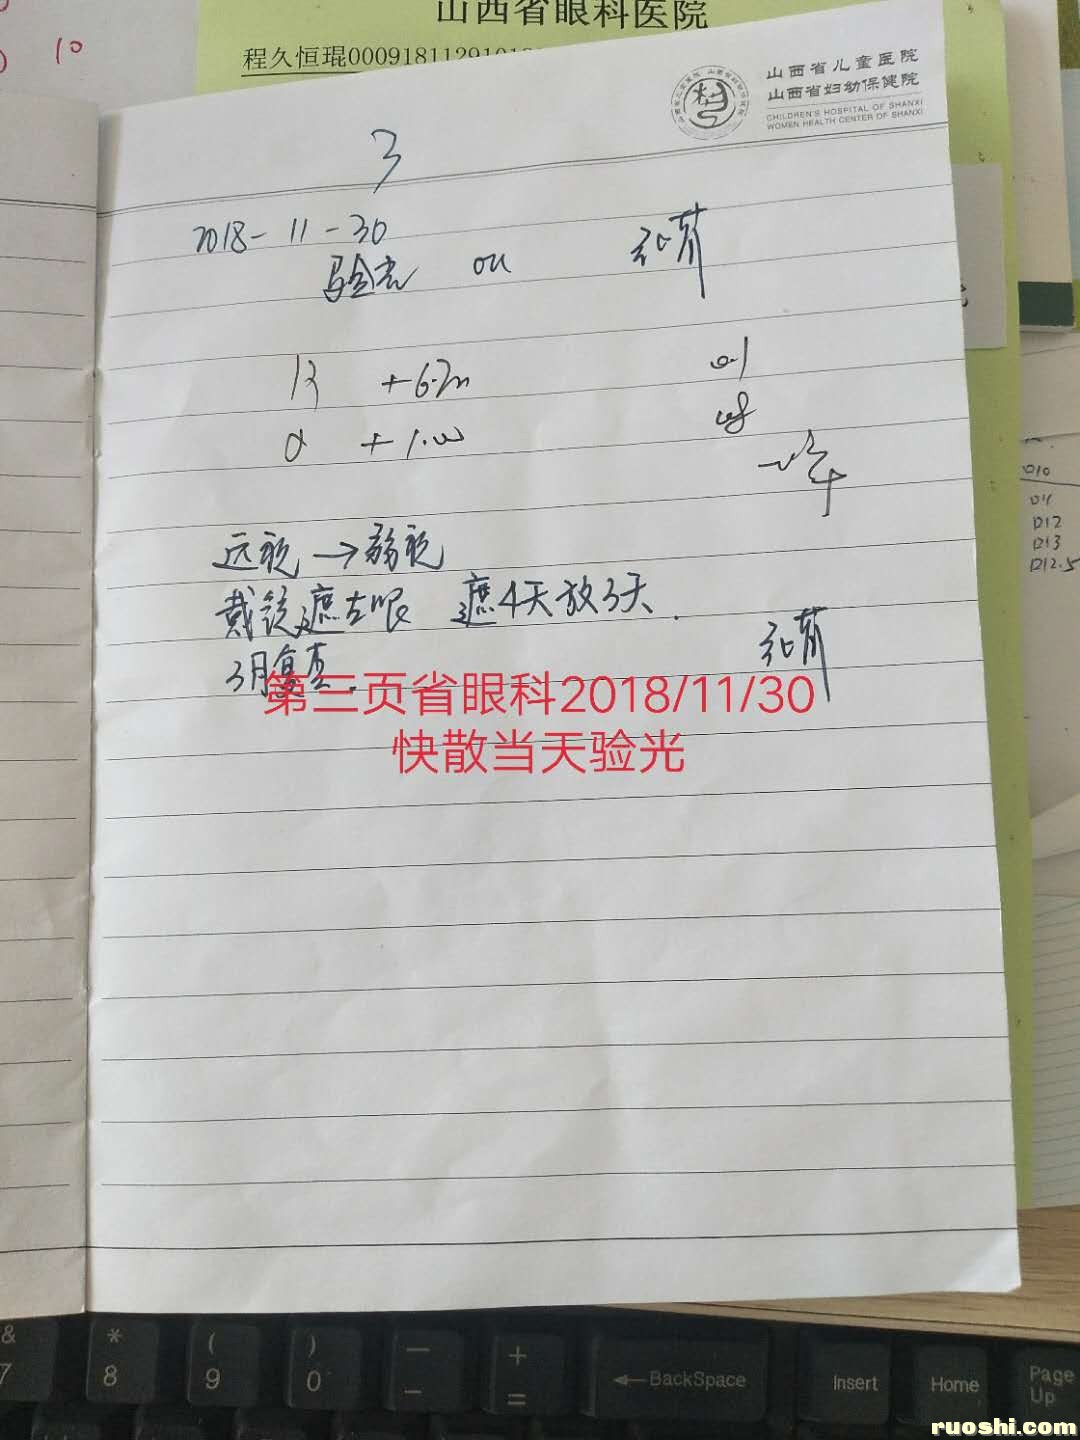 山西省眼科医院
程久恒琨000918112910
10
山西省儿童医院
山西省妇幼保健院
CHILDREN'S HOSPITAL OF SHANXI
WOMEN HEALTH CENTER OF SHANXI
3
2018-11-30
验光 ou
R
+1.00
远视→弱视
戴镜遮左眼 遮4天放3天.
3月复查.
第三页省眼科2018/11/30
快散当天验光
010
D11
D12
D13
D12.5
&
7
*
8
(
9
)
0
—
-
+
=
←BackSpace
Insert
Home
Page
Up
ruoshi.com